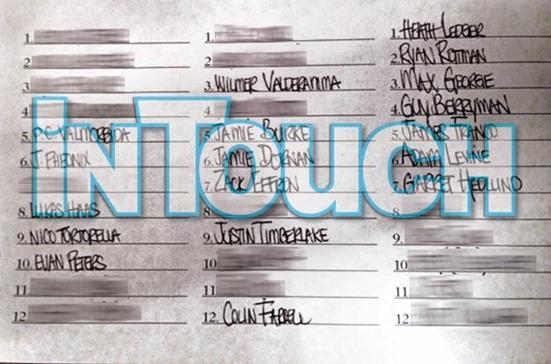 1.
2.
3.
4.
5. P.C. VALMORBIDA
6. J. PHEONIX
8. LUKAS HAAS
9. NICO TORTORELLA
10. EVAN PETERS
11.
12.
1.
2.
3. WILMER VALDERAMMA
4.
5. JAMIE BURKE
6. JAMIE DORNAN
7. ZACK EFFRON
9. JUSTIN TIMBERLAKE
10
11.
12. COLIN FARRELL
1. HEATH LEDGER
2. RYAN ROTTMAN
3. MAX GEORGE
4. GUY BERRYMAN
5. JAMES FRANCO
6. ADAM LEVINE
7. GARRET HEDLUND
8
9.
10
11
12
INTOUCH